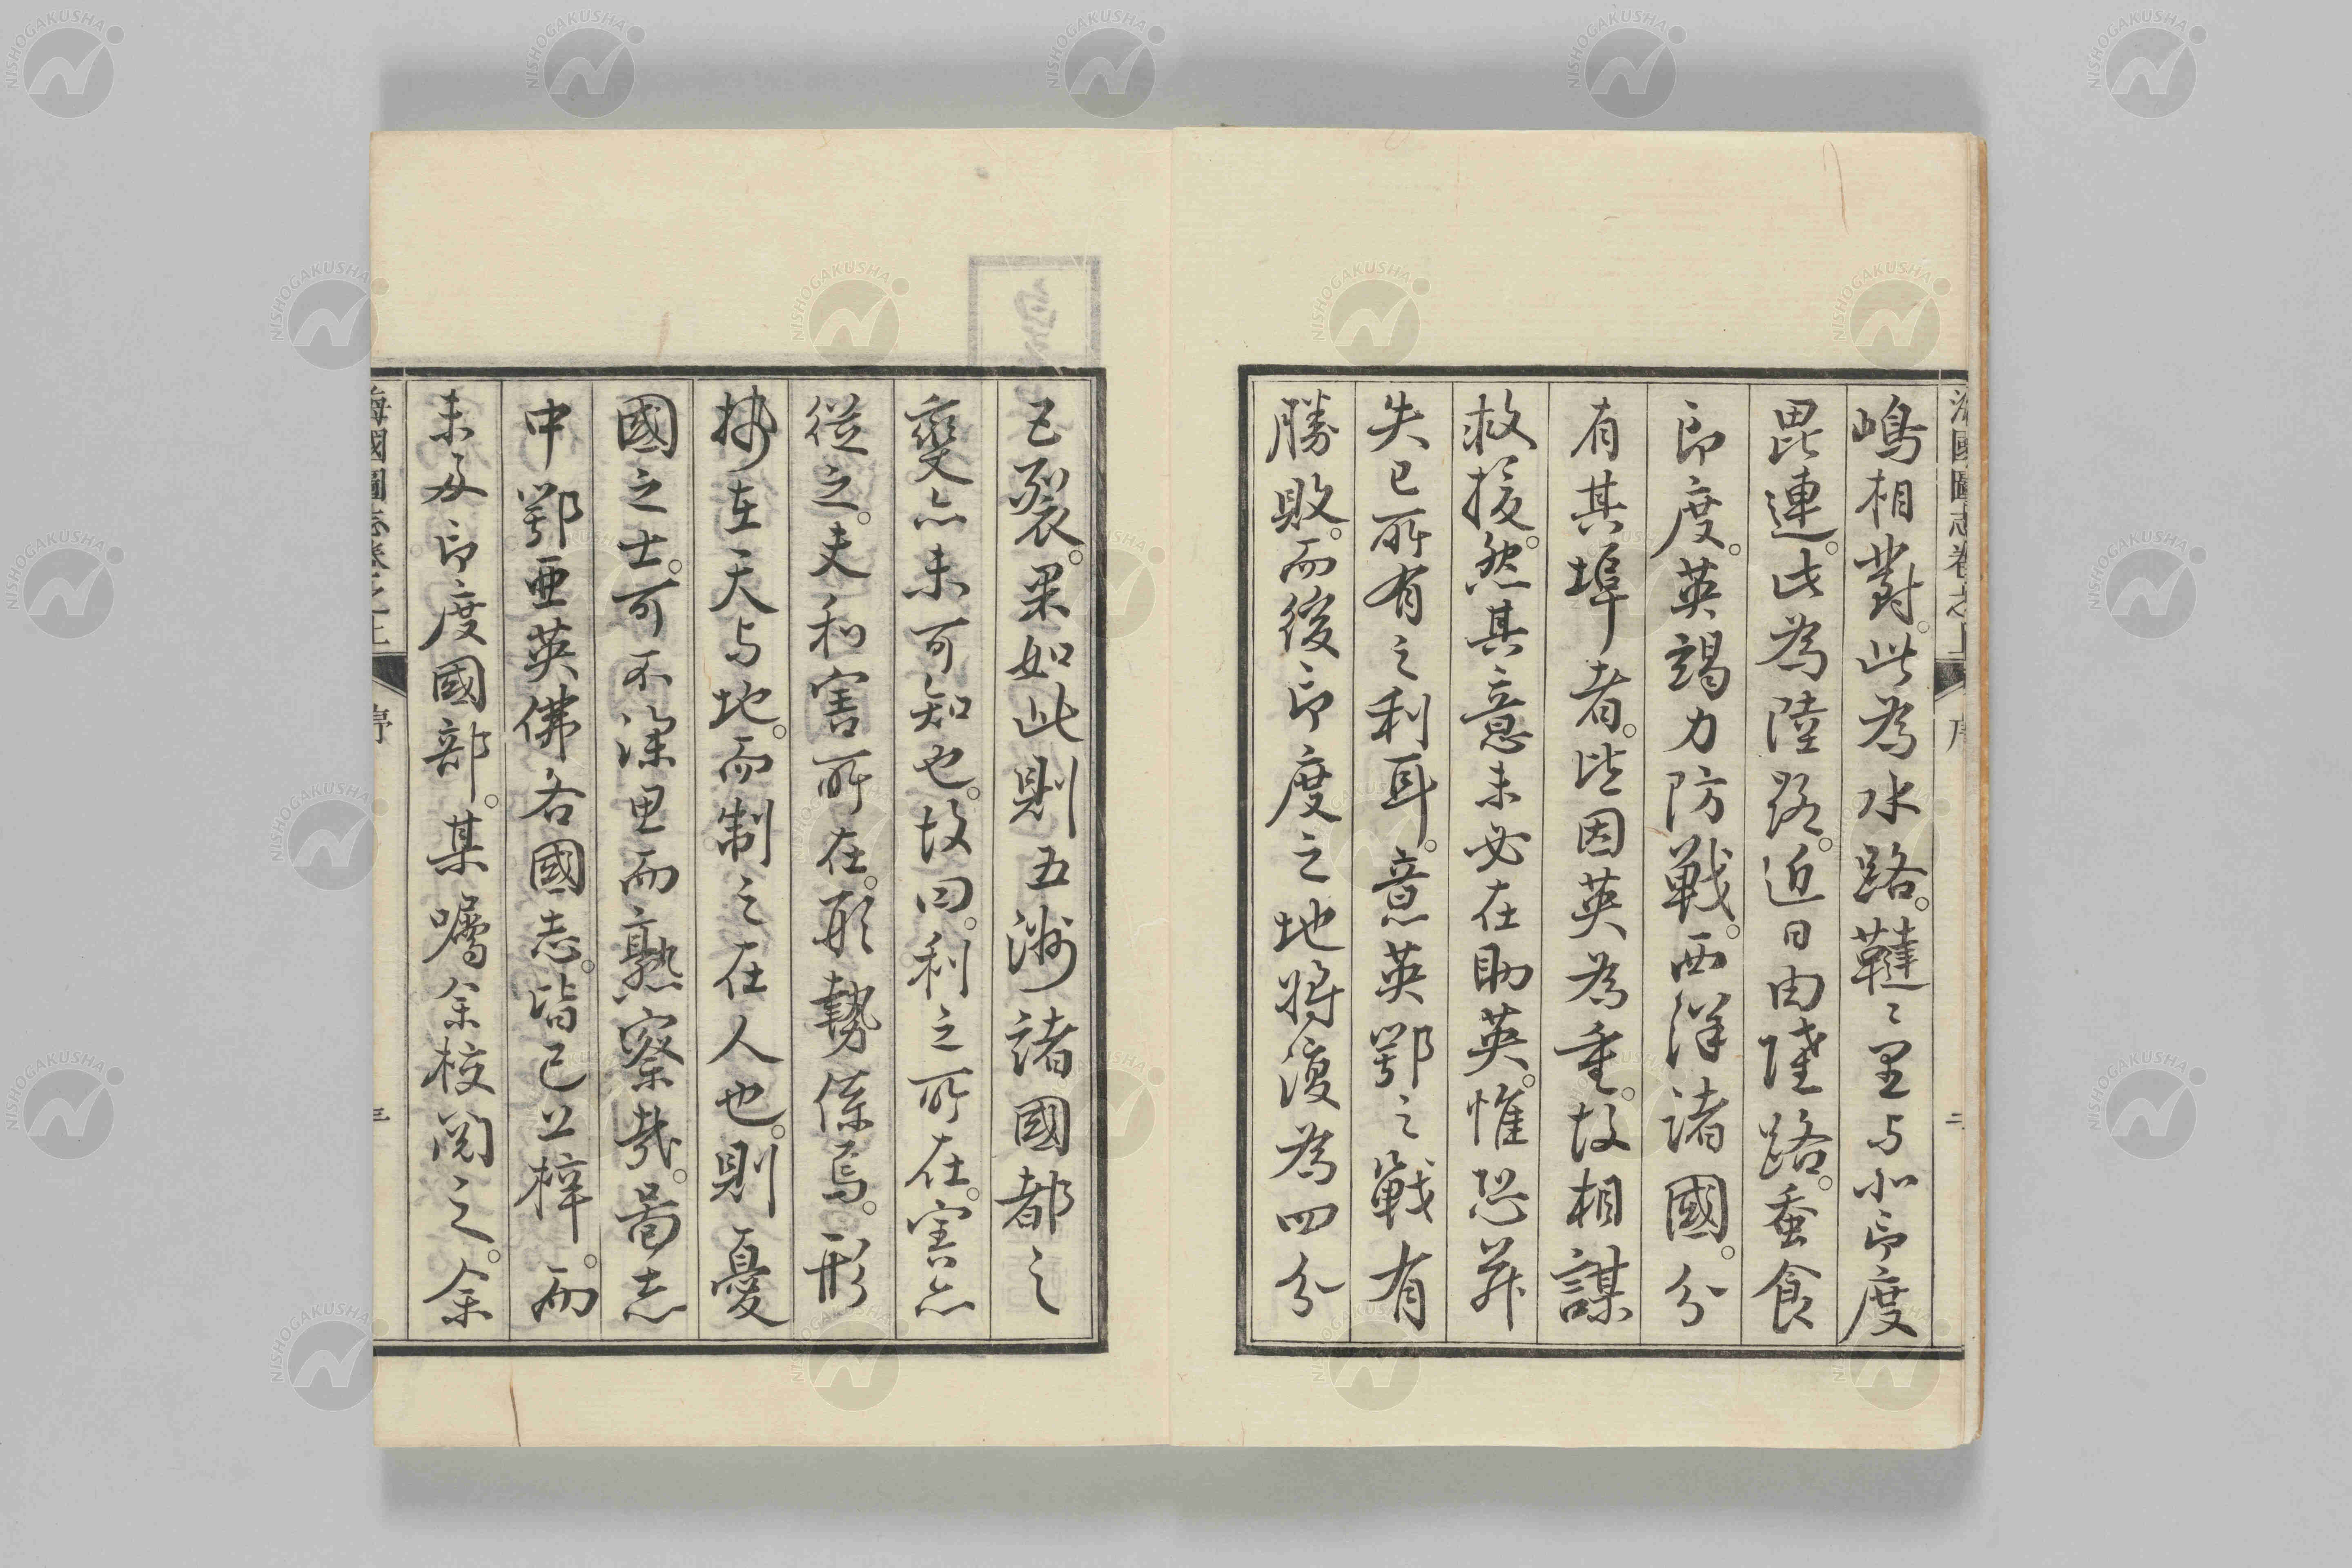 嶋相對。此為水路。韃々里与北印度
毘連。此為陸路。近日由陸路。蚕食
印度。英竭力防戦。西洋諸國。分
有其埠者。皆因英為重。故相謀
救援。然其意未必在助英。惟恐并
失已所有之利耳。意英鄂之戰有
勝敗。而後印度之地将復為四分
五裂。果如此則五洲諸國都之
變亦未可知也。故曰。利之所在。害亦
從之。夫利害所在。形勢係焉。形
勢在天与地。而制之在人也。則憂
國之士。可不深思而熟察哉。圖志
中鄂亜英佛各國志。皆已上梓。而
未及印度國部。某嘱余校閲之。余
海國圖志卷之上
序
二
海國圖志卷之上
序
三
NISHOGAKUSHA